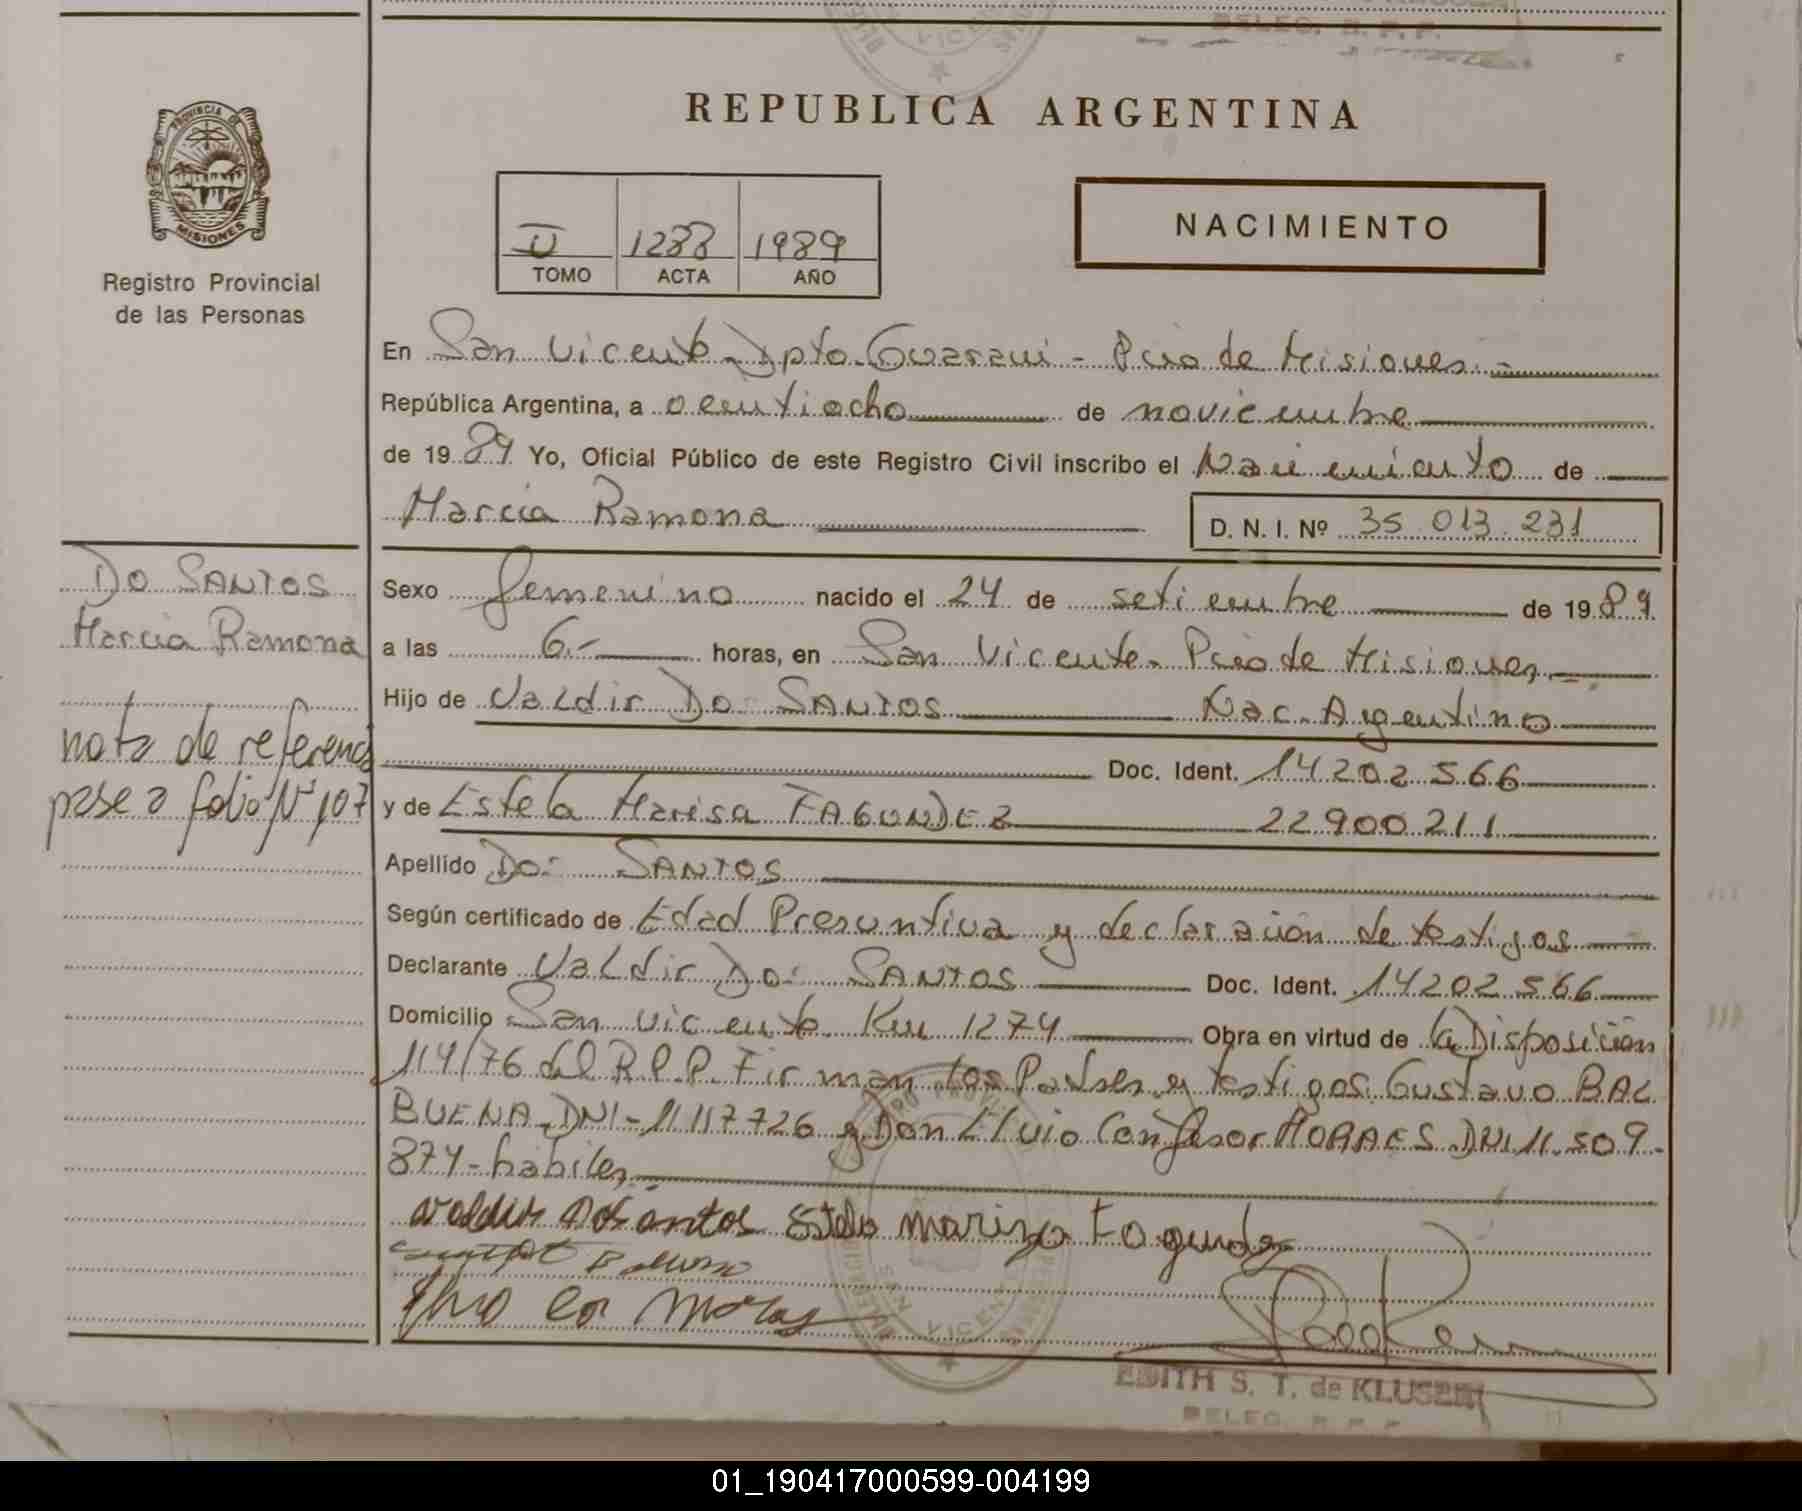 DELEG. R. P. P.
VICEN
REPUBLICA ARGENTINA
PROVINCIA DE
MISIONES
Registro Provincial
de las Personas
II 1288 1989
TOMO ACTA AÑO
NACIMIENTO
En San Vicente Dpto. Guarani - Pcia de Misiones.-
República Argentina, a veintiocho de noviembre
de 1989 Yo, Oficial Público de este Registro Civil inscribo el Nacimiento de
Marcia Ramona D. N. I. Nº 35.013.231
DO SANTOS
Marcia Ramona
nota de referencia
pase a folio Nº 107
Sexo femenino nacido el 24 de setiembre de 1989
a las 6.- horas, en San Vicente. Pcia de Misiones.
Hijo de Valdir DO SANTOS Nac. Argentino
Doc. Ident. 14202566
y de Estela Marisa FAGUNDEZ 22900211
Apellido DO SANTOS
Según certificado de Edad Presuntiva y declaración de testigos
Declarante Valdir DO SANTOS Doc. Ident. 14202566
Domicilio San Vicente Km 1274 Obra en virtud de la Disposición
114/76 del R.P.P. Firman los Padres y testigos Gustavo BAL
BUENA. DNI-11117726 y Don Elvio Confesor MORAES. DNI 11.509.
874-habiles.
valdir Do santos Estela mariza Fagundez
EDITH S. T. de KLUSENER
DELEG. R. P. P.
01_190417000599-004199